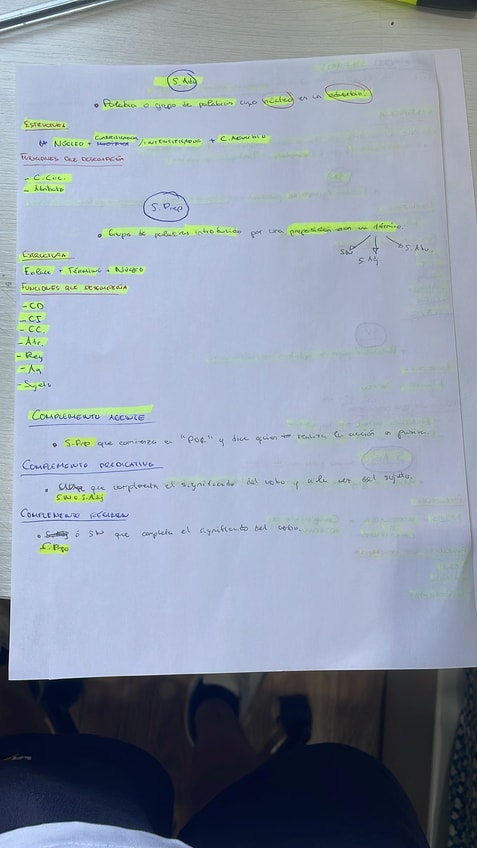 S. Adv
• Palabra o grupo de palabras cuyo núcleo es un adverbio.
ESTRUCTURA
NÚCLEO + CUANTIFICADOR / INTENSIFICADOR + C. ADVERBIO
FUNCIONES QUE DESEMPEÑA
- C. Circ.
- Atributo
S. Prep
• Grupo de palabras introducido por una preposición con un término.
SN S. Adj S. Adv
ESTRUCTURA
Enlace + TÉRMINO + NÚCLEO
FUNCIONES QUE DESEMPEÑA
- CD
- CI
- CC.
- Atr.
- Reg
- Ag
- Sujeto
COMPLEMENTO AGENTE
• S. Prep que comienza en "POR" y dice quien realiza la acción en pasiva.
COMPLEMENTO PREDICATIVO
• que completa el significado del verbo y a la vez del sujeto.
S.N o S. Adj
COMPLEMENTO REGIMEN
• ó SN que completa el significado del verbo.
S. Prep